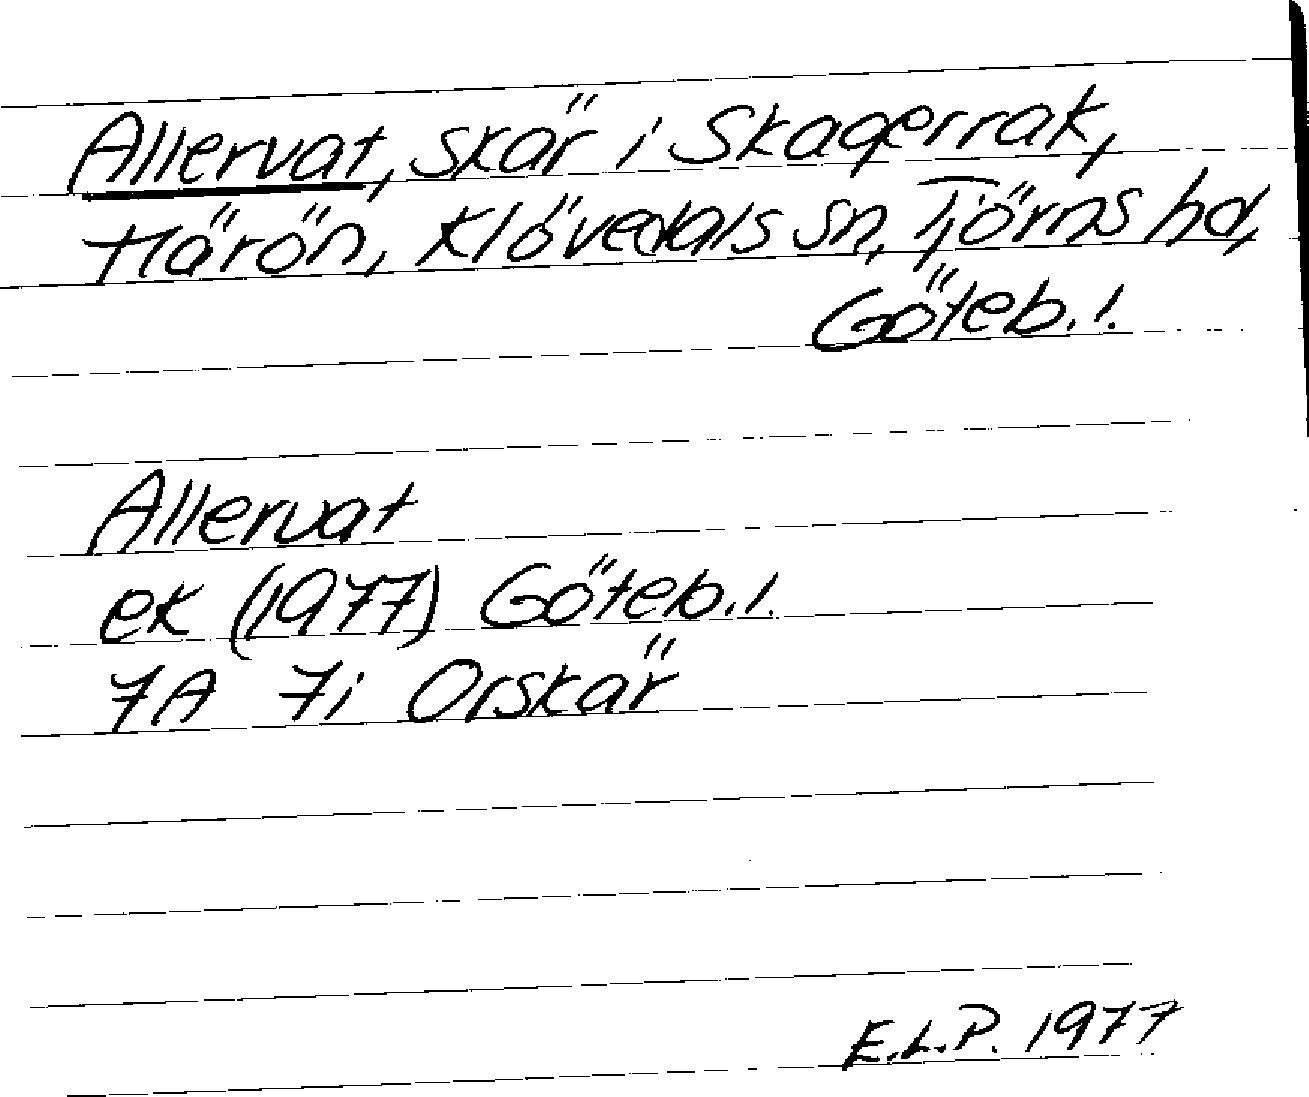 Allervat, skär i Skagerrak,
Härön, Klövedals sn, Tjörns hd,
Göteb. l.
Allervat
ek (1977) Göteb. l.
7A 7i Orskär
E.L.P. 1977